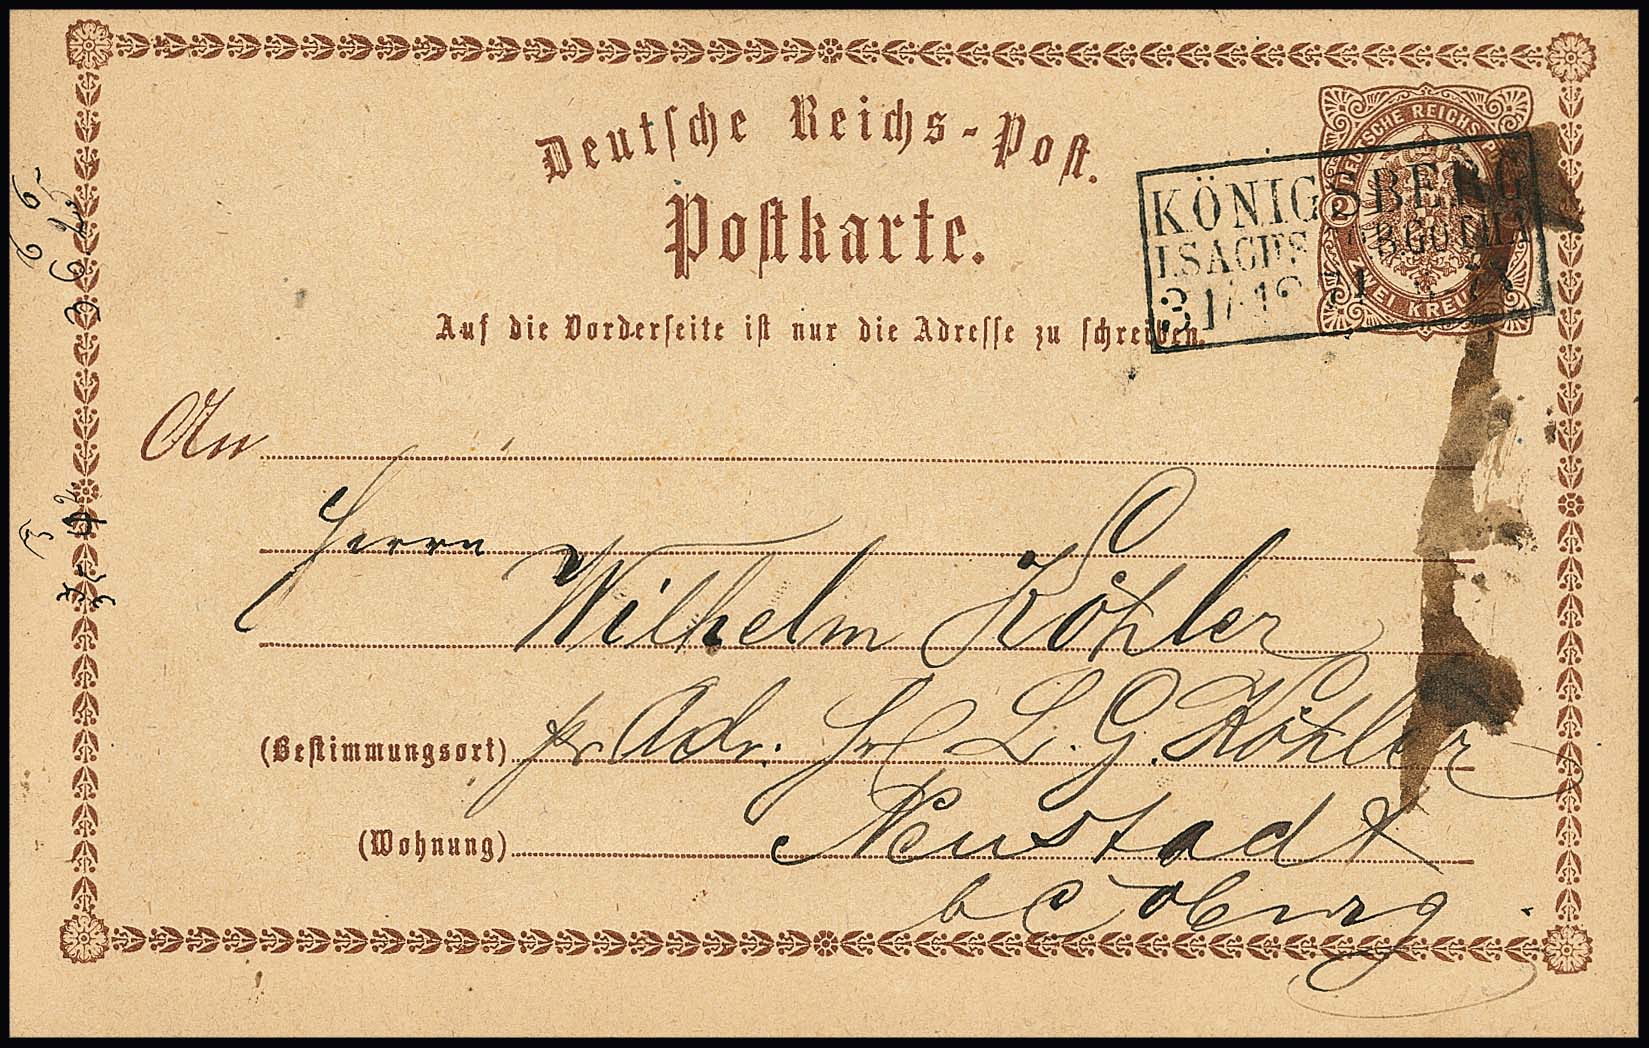 Deutsche Reichs-Post.
Postkarte.
Auf die Vorderseite ist nur die Adresse zu schreiben.
DEUTSCHE REICHSPOST
ZWEI KREUZER
KÖNIGSBERG
I.SACHS B.GOTHA
31 12
An
Herrn
Wilhelm Köhler
(Bestimmungsort) pr Adr. L. G. Köhler
(Wohnung) Neustadt
b Coburg